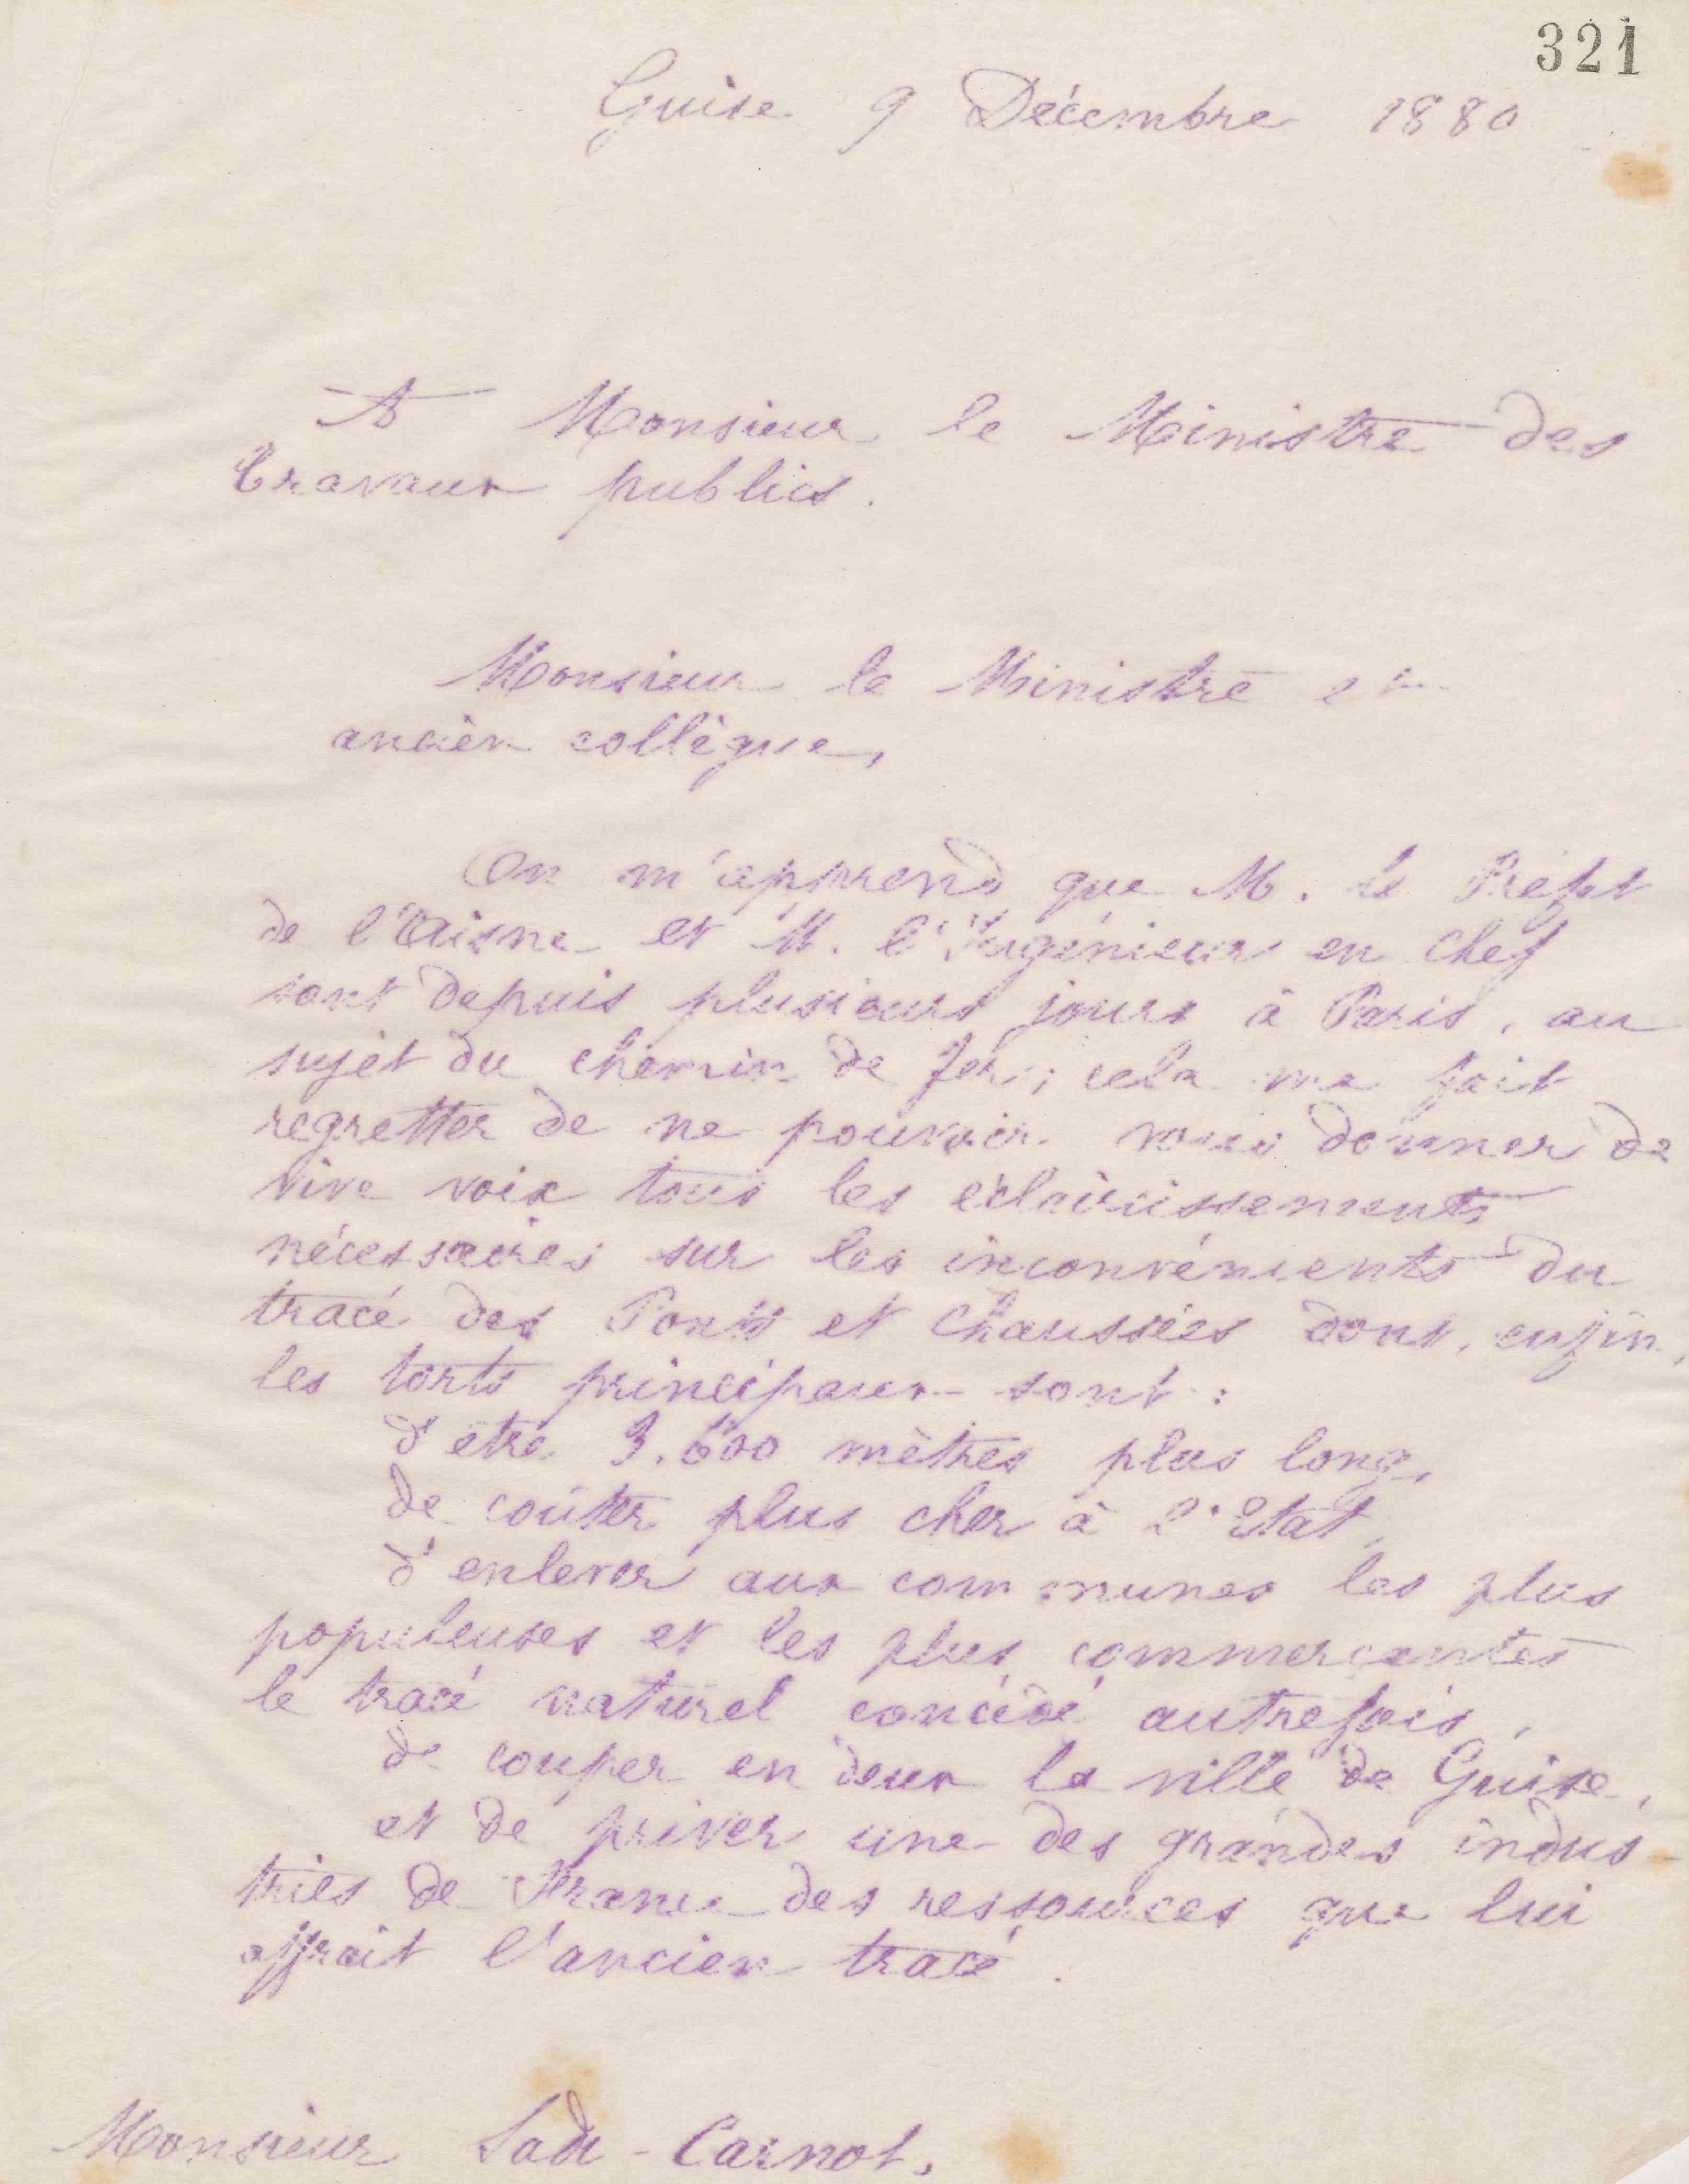 321
Guise 9 Décembre 1880
A Monsieur le Ministre des
Travaux publics.
Monsieur le Ministre et
ancien collègue,
On m'apprend que M. le Préfet
de l'Aisne et M. l'Ingénieur en Chef
sont depuis plusieurs jours à Paris, au
sujet du chemin de fer; cela me fait
regretter de ne pouvoir vous donner de
vive voix tous les éclaircissements
nécessaires sur les inconvénients du
tracé des Ponts et Chaussées dont, enfin,
les torts principaux sont :
d'être 3.600 mètres plus long,
de coûter plus cher à l'Etat,
d'enlever aux communes les plus
populeuses et les plus commerçantes
le tracé naturel concédé autrefois,
de couper en deux la ville de Guise,
et de priver une des grandes indus-
tries de France des ressources que lui
offrait l'ancien tracé.
Monsieur Sadi-Carnot.